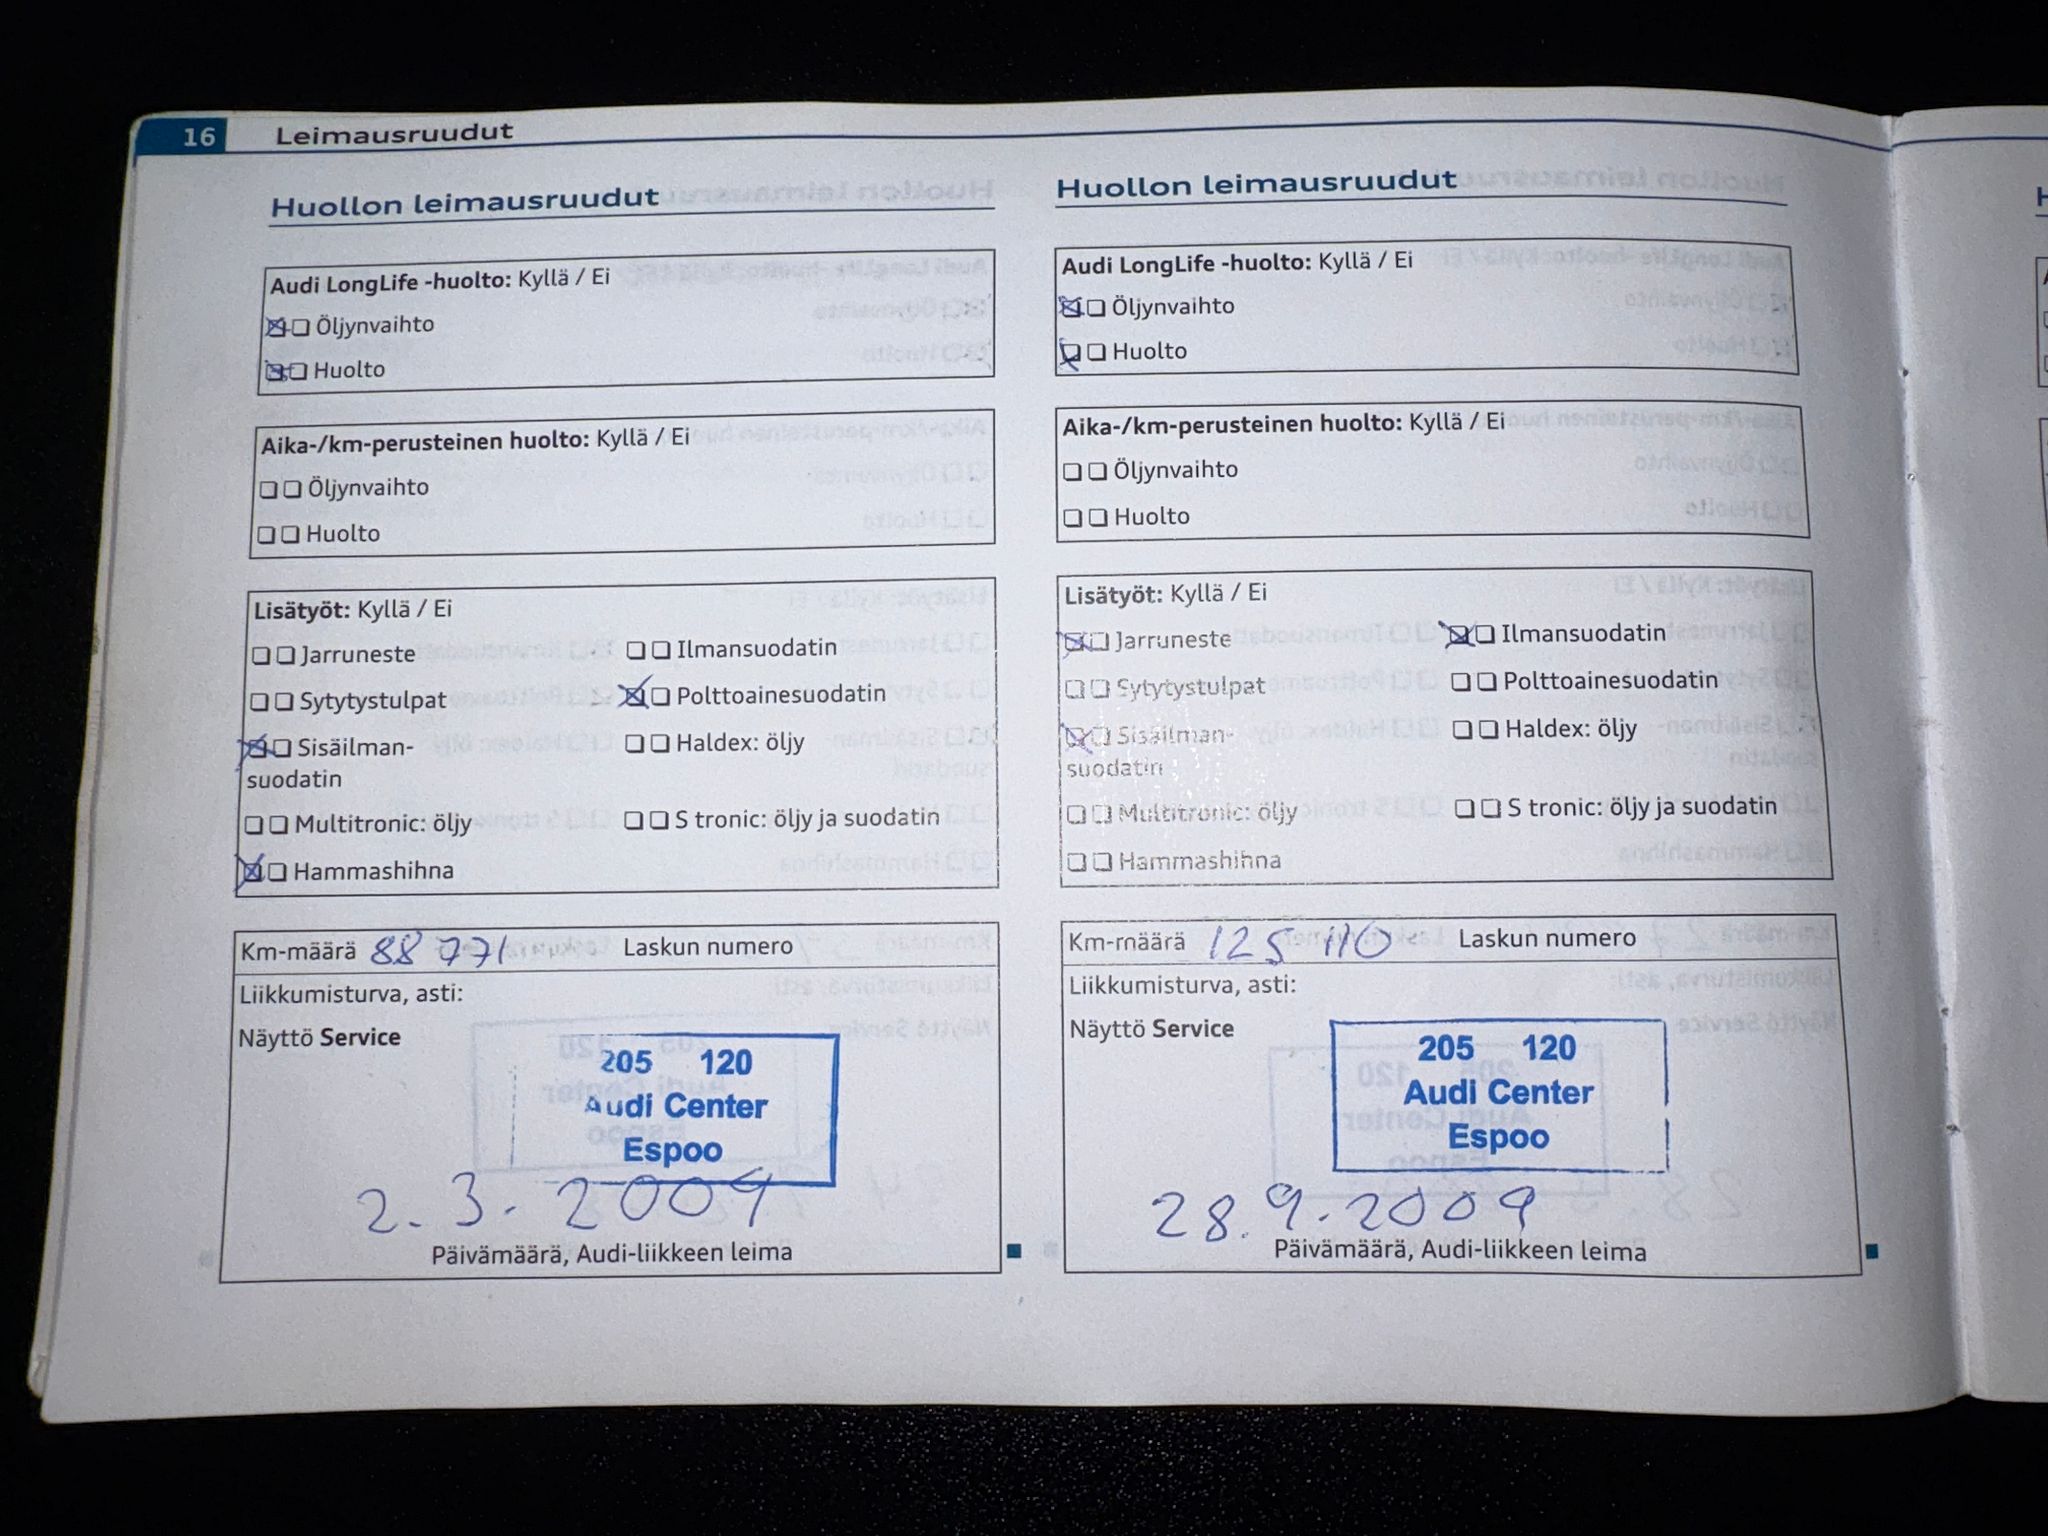 16 Leimausruudut
Huollon leimausruudut
Audi LongLife -huolto: Kyllä / Ei
Öljynvaihto
Huolto
Aika-/km-perusteinen huolto: Kyllä / Ei
Öljynvaihto
Huolto
Lisätyöt: Kyllä / Ei
Jarruneste Ilmansuodatin
Sytytystulpat Polttoainesuodatin
Sisäilman- Haldex: öljy
suodatin
Multitronic: öljy S tronic: öljy ja suodatin
Hammashihna
Km-määrä 88 771 Laskun numero
Liikkumisturva, asti:
Näyttö Service
205 120
Audi Center
Espoo
2.3.2009
Päivämäärä, Audi-liikkeen leima
Huollon leimausruudut
Audi LongLife -huolto: Kyllä / Ei
Öljynvaihto
Huolto
Aika-/km-perusteinen huolto: Kyllä / Ei
Öljynvaihto
Huolto
Lisätyöt: Kyllä / Ei
Jarruneste Ilmansuodatin
Sytytystulpat Polttoainesuodatin
Sisäilman- Haldex: öljy
suodatin
Multitronic: öljy S tronic: öljy ja suodatin
Hammashihna
Km-määrä 125 110 Laskun numero
Liikkumisturva, asti:
Näyttö Service
205 120
Audi Center
Espoo
28.9.2009
Päivämäärä, Audi-liikkeen leima